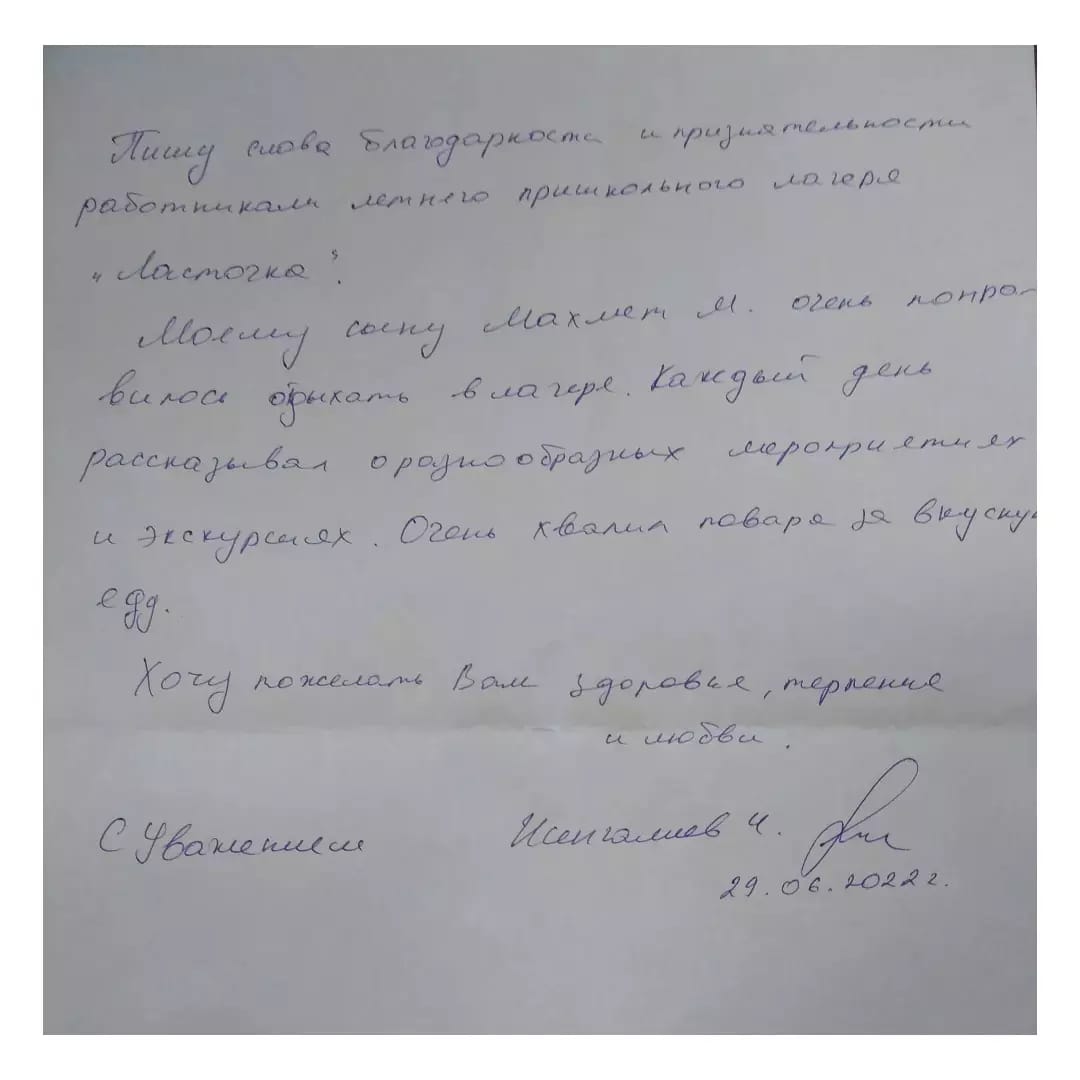 Пишу слова благодарности и признятельности
работникам летнего пришкольного лагеря
"Ласточка".
Моему сыну Махмет М. очень понра-
вилось отдыхать в лагере. Каждый день
рассказывал о разнообразных мероприятиях
и экскурсиях. Очень хвалил повара за вкусну
еду.
Хочу пожелать Вам здоровье, терпение
и любви.
С Уважением Исенгалиев Ч.
29.06.2022г.